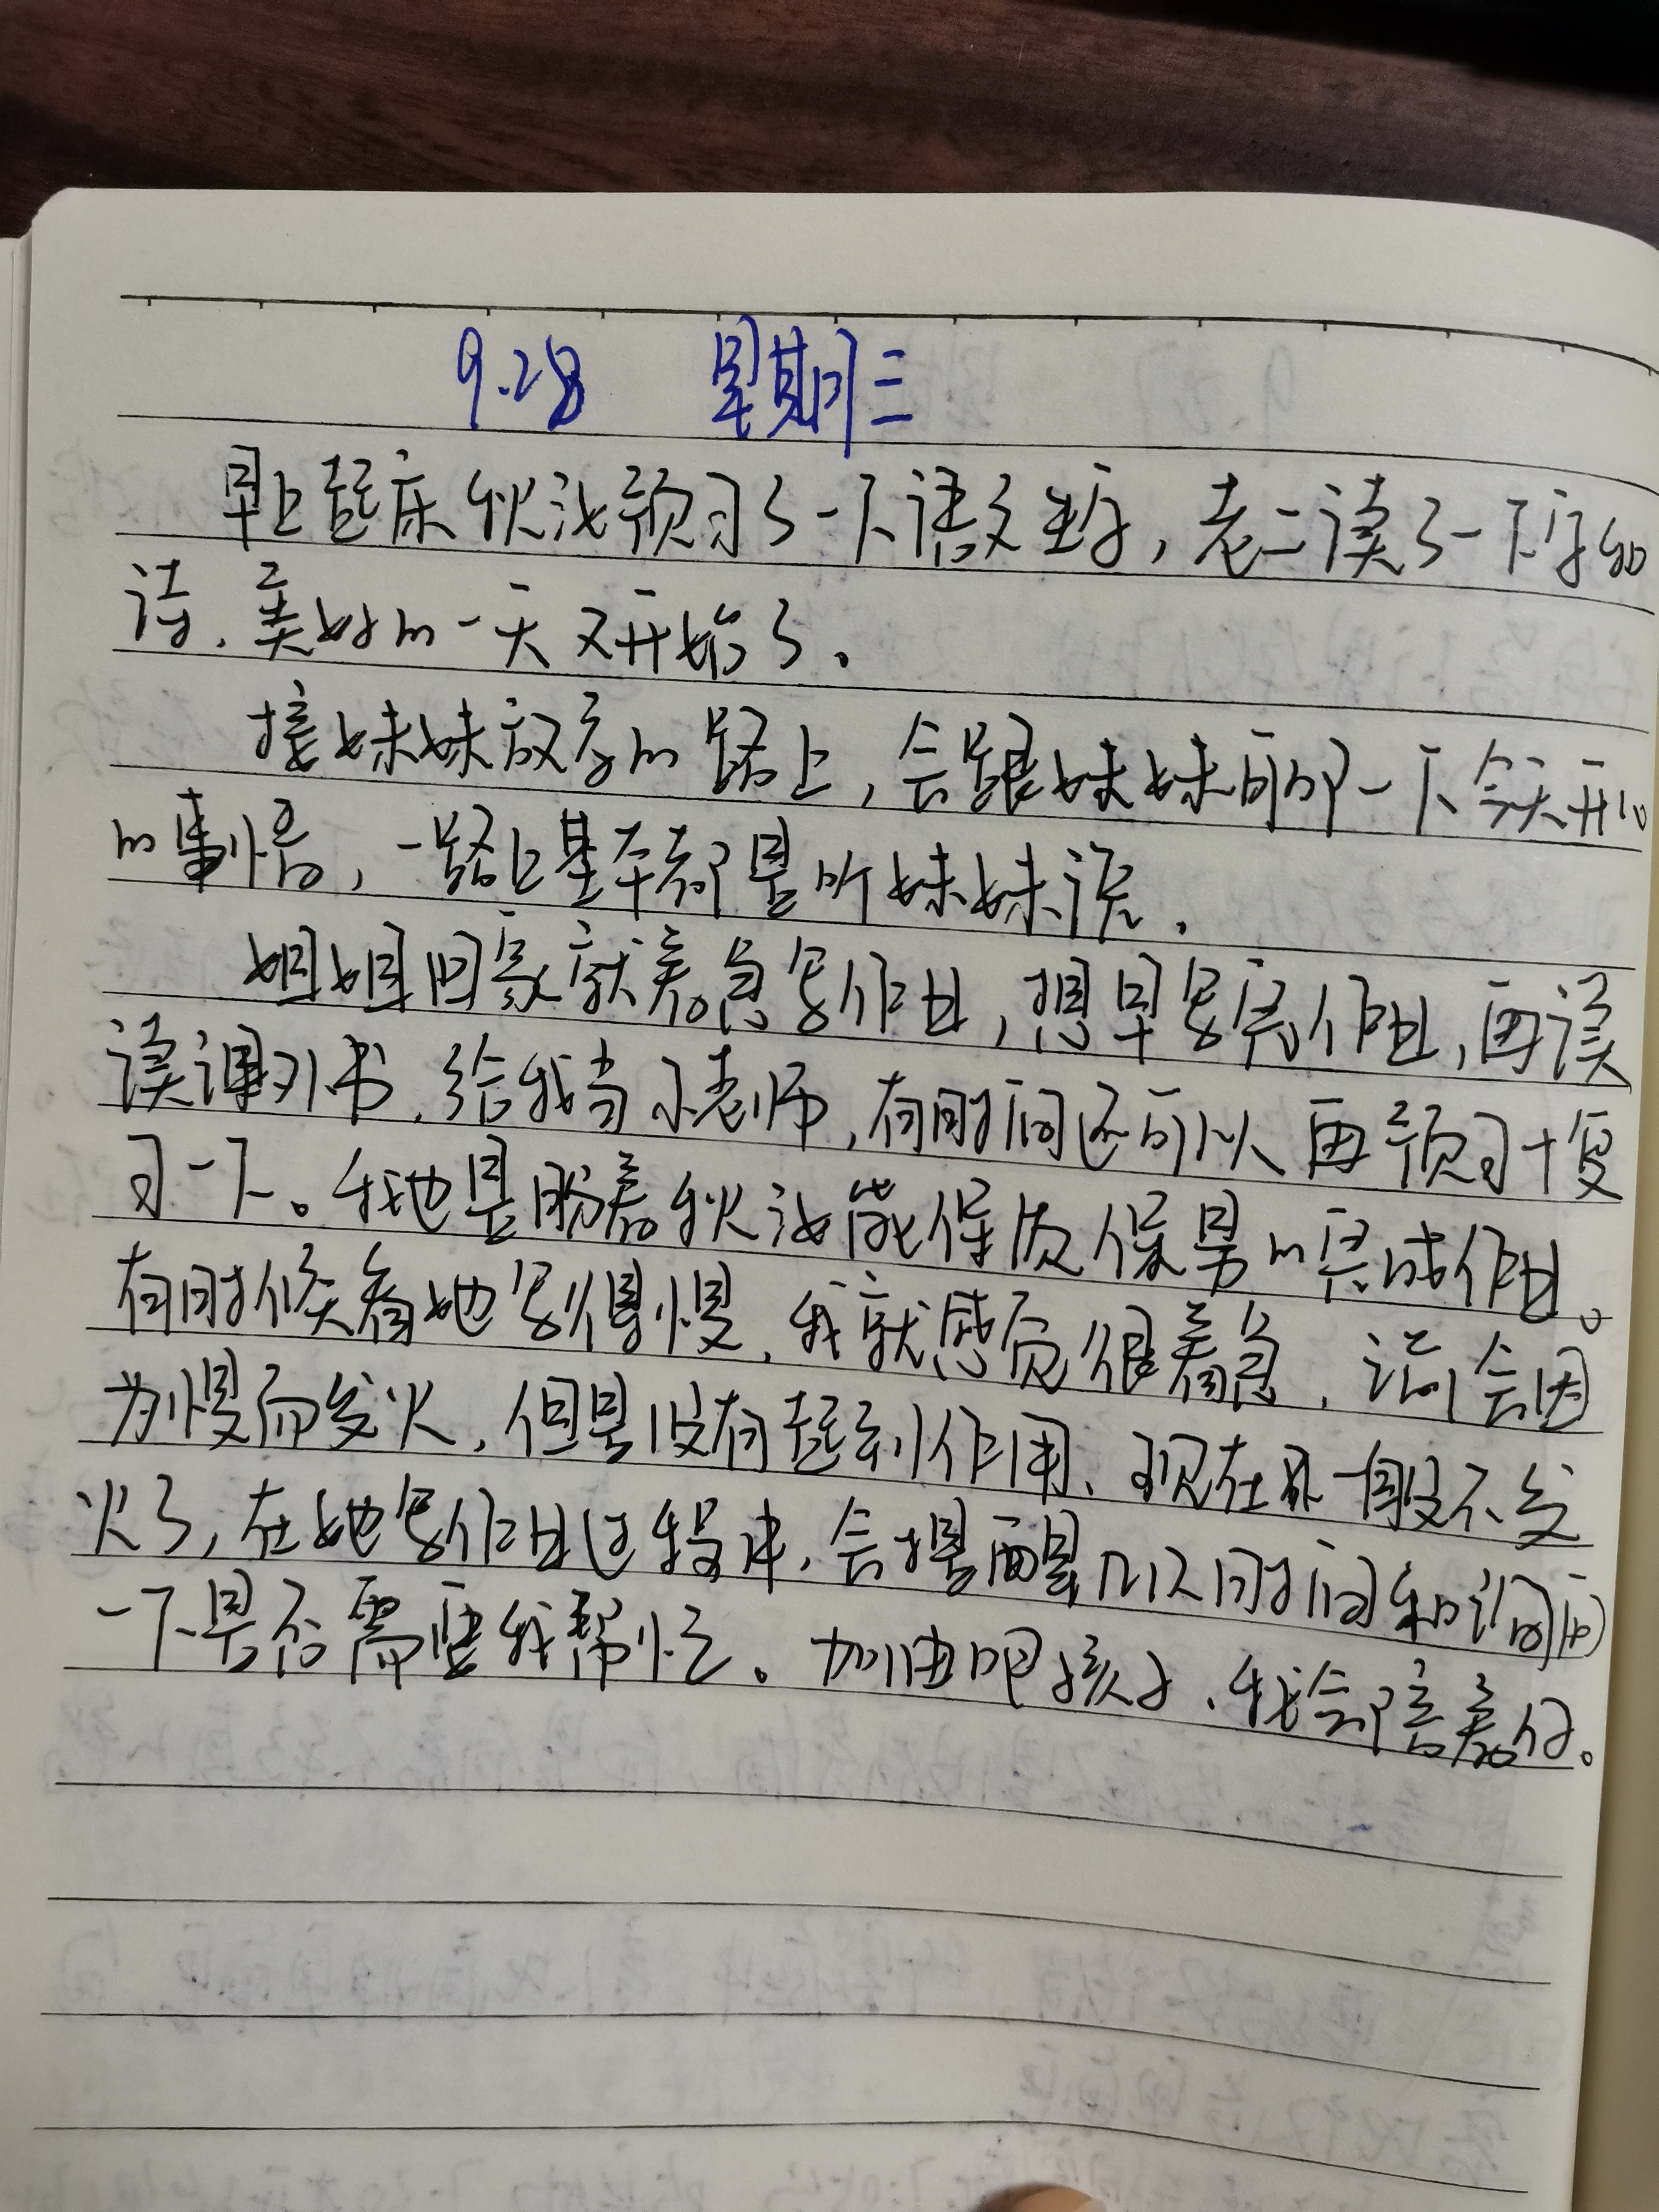 9.28 星期三
早上起床秋汝预习了一下语文生字，老二读了一下字和
诗，美好的一天又开始了。
接妹妹放学的路上，会跟妹妹聊一下今天开心
的事情，一路上基本都是听妹妹说，
姐姐回家就着急写作业，想早写完作业，再读
读课外书，给我当小老师，有时间还可以再预习+复
习一下。我也是盼着秋汝能保质保量的完成作业。
有时候看她写得慢，我就感觉很着急，会因
为慢而发火，但是没有起到作用、现在我一般不发
火了，在她写作业过程中，会提醒几次时间和询问
一下是否需要我帮忙。加油吧孩子，我会陪着你。